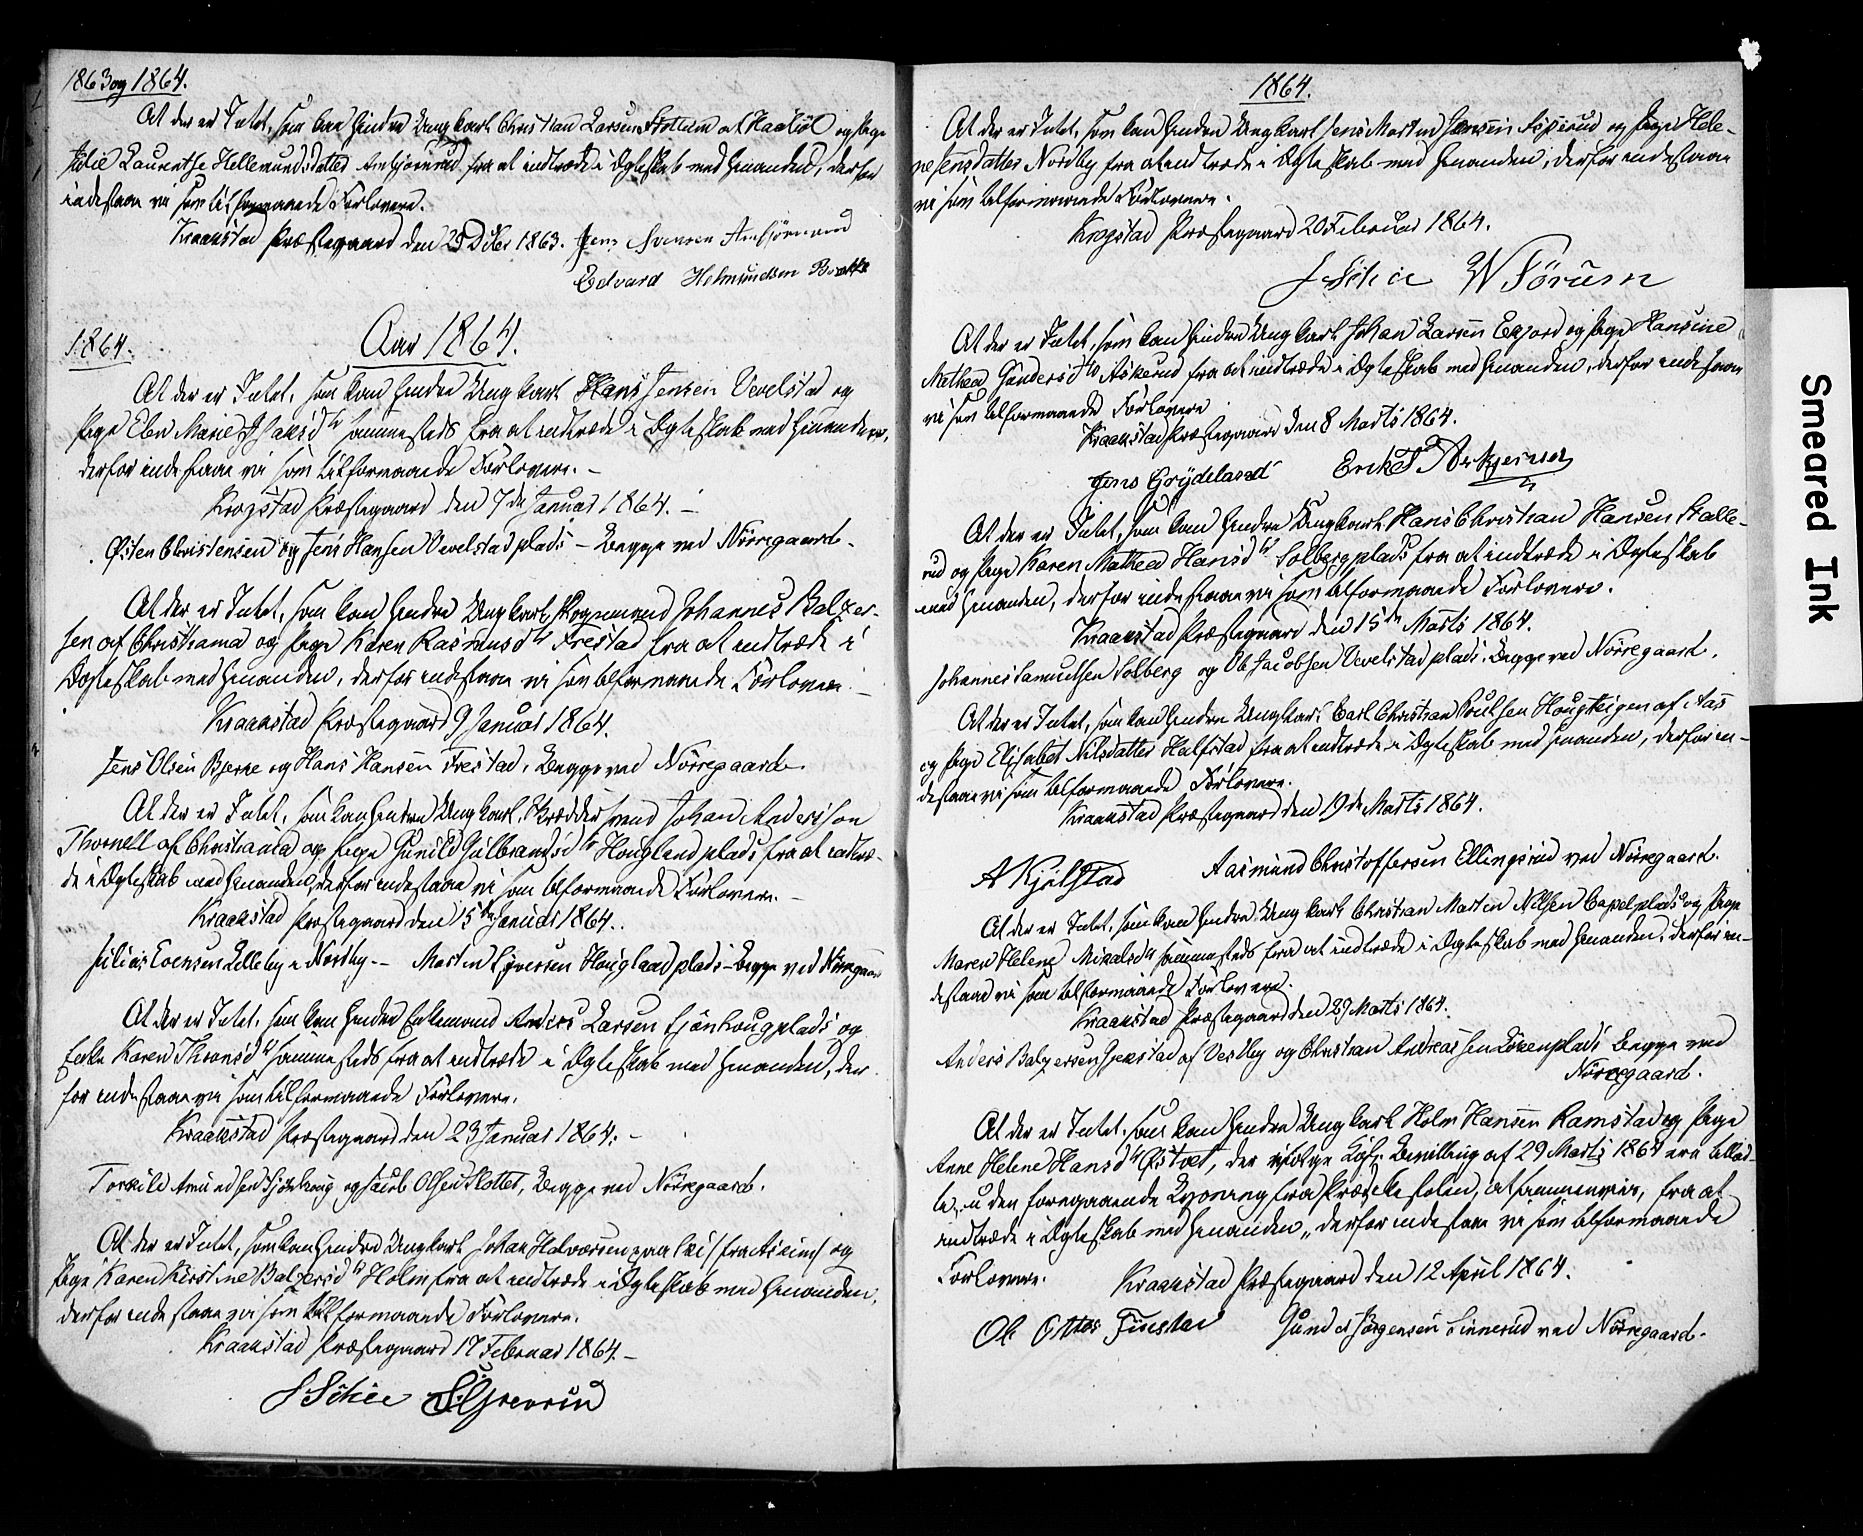 1863 og 1864.
At der er Intet, som kan hindre Ungkarl Christian Larsen af og Pige
Julie Laurentse Hellemundsdatter fra at indtræde i Ægteskab med hinanden, derfor
indestaae vi som tilformaaende Forlovere.
Kraakstad Præstegaard den 29 Dcbr 1863. Jens Svensen
Edvard Helmundsen
1864.
Aar 1864.
At der er Intet, som kan hindre Ungkarl Hans Jensen Vevelstad og
Pige Marie sammesteds fra at indtræde i Ægteskab med hinanden,
derfor indestaae vi som tilformaaende Forlovere. -
Krogstad Præstegaard den 7de Januar 1864. -
Østen Christensen og Jens Hansen Vevelstadplads - Begge ved Nørregaard.
At der er Intet, som kan hindre Ungkarl, Vognmand Johannes Balzer-
sen af Christiania og Pige Karen Rasmusdtr Frestad fra at indtræde i
Ægteskab med hinanden, derfor indestaae vi som tilformaaende Forlovere. -
Kraakstad Præstegaard 9 Januar 1864.
Jens Olsen Bjerke og Hans Hansen Frestad, Begge ved Nørregaard.
At der er Intet, som kan hindre Ungkarl, Skræddersvend Johan Andersson
Thornell af Christiania og Pige Gunild Gulbrandsdtr Houglandplads fra at indtræ-
de i Ægteskab med hinanden, derfor indestaae vi som tilformaaende Forlovere. -
Kraakstad Præstegaard den 15de Januar 1864.
Julius Evensen Nordby - Martin Syversen Houglandplads - Begge ved Nørregaard
At der er Intet, som kan hindre Enkemand Anders Larsen og
Enke Karen sammesteds fra at indtræde i Ægteskab med hinanden, der-
for indestaae vi som tilformaaende Forlovere.
Kraakstad Præstegaard den 23 Januar 1864. -
Torkild Amundsen og Jacob Olsen Slottet, Begge ved Nørregaard.
At der er Intet, som kan hindre Ungkarl Johan Halvorsen fra Askim og
Pige Karen Kirstine Balzersdtr Holm fra at indtræde i Ægteskab med hinanden,
derfor indestaae vi som tilformaaende Forlovere.
Kraakstad Præstegaard 17 Februar 1864. -
S Schie
1864.
At der er Intet, som kan hindre Ungkarl Jens Martin Jensen Asperud og Pige Hele-
ne Jensdatter Nordby fra at indtræde i Ægteskab med hinanden, derfor indestaae
vi som tilformaaende Forlovere.
Krogstad Præstegaard 20 Februar 1864.
S Schie W Sørum
At der er Intet, som kan hindre Ungkarl Johan Larsen og Pige Hansine
Mathea Gundersdtr Askerud fra at indtræde i Ægteskab med hinanden, derfor indestaae
vi som tilformaaende Forlovere
Kraakstad Præstegaard den 8 Marts 1864.
Jens Grydeland
At der er Intet, som kan hindre Ungkarl Hans Christian Hansen Skolle-
rud og Pige Karen Mathea Hansdtr Solbergplads fra at indtræde i Ægteskab
med hinanden, derfor indestaae vi som tilformaaende Forlovere.
Kraakstad Præstegaard den 15de Marts 1864.
Johannes Samuelsen Solberg og Ole Jacobsen Vevelstadplads, Begge ved Nørregaard.
At der er Intet, som kan hindre Ungkarl Carl Christian Poulsen Hougteigen af Aas
og Pige Elisabet Nilsdatter Halfstad fra at indtræde i Ægteskab med hinanden, derfor in-
destaae vi som tilformaaende Forlovere.
Kraakstad Præstegaard den 19de Marts 1864.
A Kjølstad Aasmund Christoffersen Ellingsrud ved Nørregaard.
At der er Intet, som kan hindre Ungkarl Christian Martin Nilsen og Pige
Maren Helene Mikalsdtr sammesteds fra at indtræde i Ægteskab med hinanden, derfor in-
destaae vi som tilformaaende Forlovere.
Kraakstad Præstegaard den 29 Marts 1864.
Anders Balzersen af Vestby og Christian Andreassen Begge ved
Nørregaard.
At der er Intet, som kan hindre Ungkarl Holm Hansen Ramstad og Pige
Anne Helene Hansdtr Østvet, der ifølge Kgl. Bevilling af 29 Marts 1864 ere tillad-
te, uden foregaaende Lysning fra Prædikestolen, at sammenvies, fra at
indtræde i Ægteskab med hinanden, derfor indestaae vi som tilformaaende
Forlovere.
Kraakstad Præstegaard den 12 April 1864.
Ole Ottes Finstad Gunder Jørgensen Sinnerud ved Nørregaard.
Smeared Ink